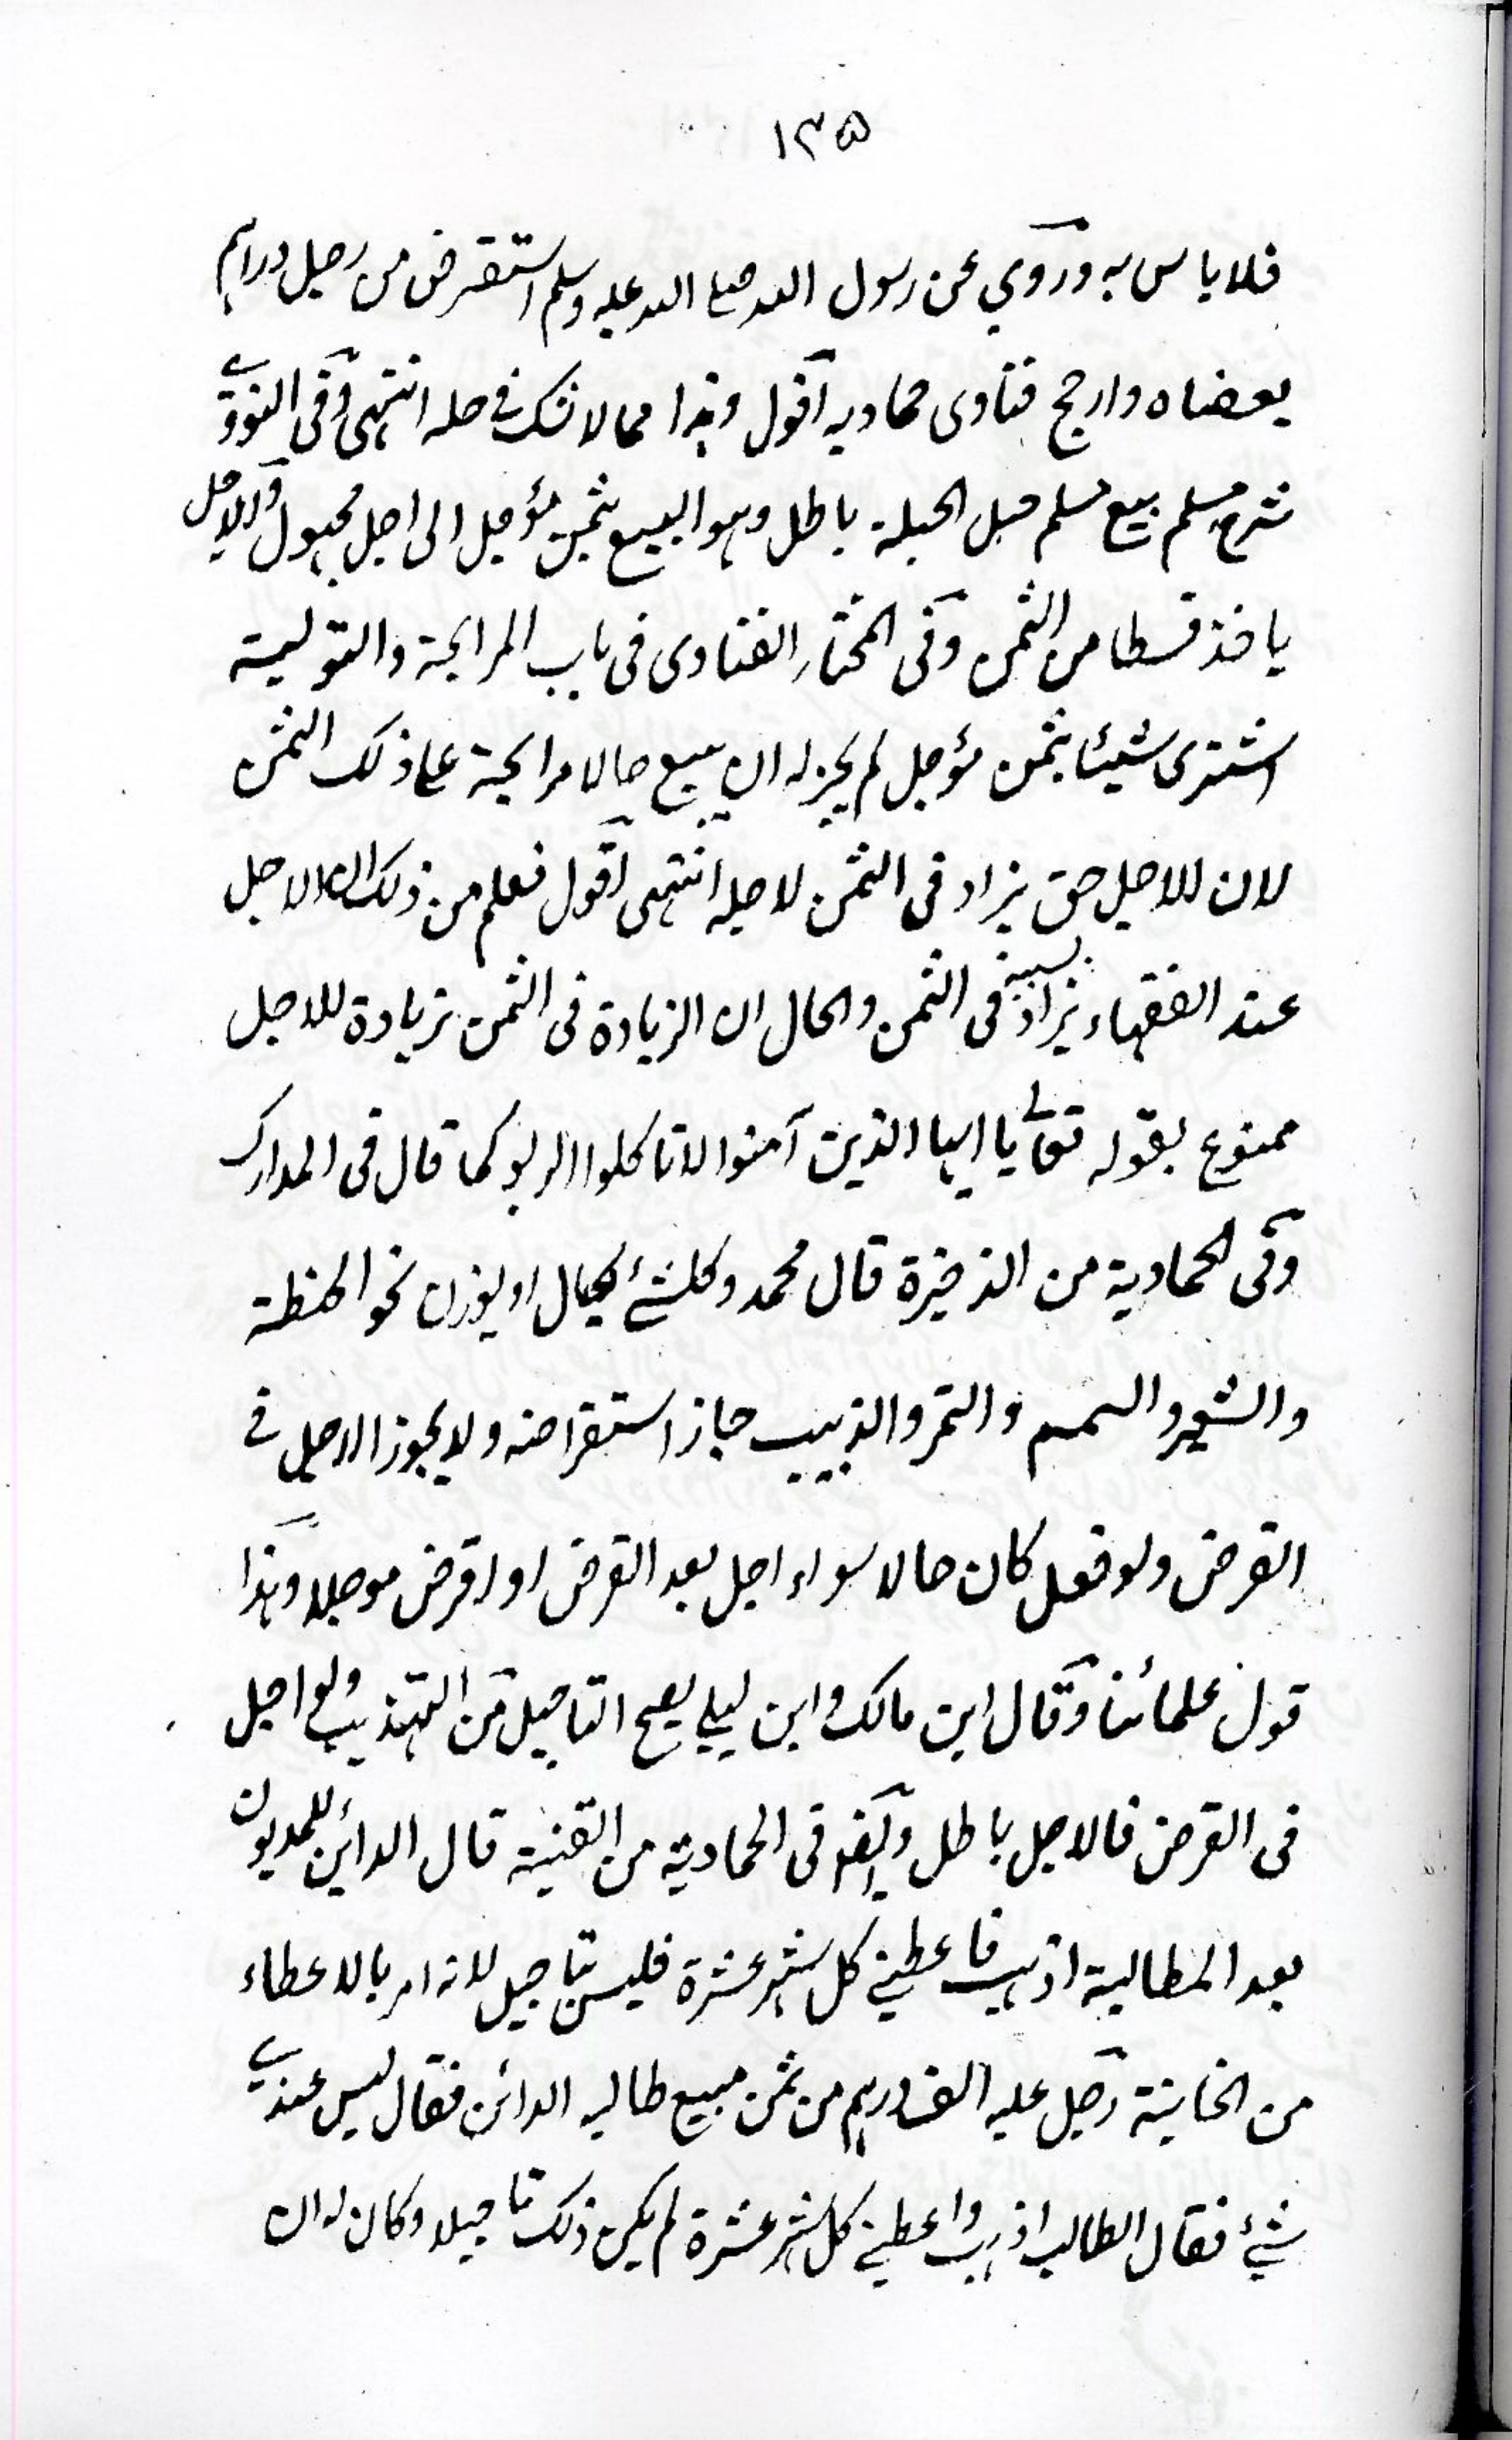 ١٣٥
فلا باس به وروي عن رسول الله صلے الله عليه وسلم استقرض من رجل دراهم
بعضاه وارجح فتاوى حماديه اقول وهذا مما لا شك في حله انتهى وفى النووي
شرح مسلم بيع مسلم حبل الحبلة باطل وهو البيع بثمن مؤجل الى اجل مجهول والاجل
ياخذ قسطا من الثمن وفى المختار الفتاوى فى باب المرابحة والتولية
اشترى شيئا بثمن مؤجل لم يجز له ان يبيع حالا مرابحة علے ذلك الثمن
لان للاجل حق يزاد فى الثمن لاجله انتهى اقول فعلم من ذلك ان الاجل
عند الفقهاء يزاد بسببه فى الثمن والحال ان الزيادة فى الثمن بزيادة للاجل
ممنوع بقوله تعالے يا ايها الذين آمنوا لا تاكلوا الربو كما قال فى المدارك
وفى الحمادية من الذخيرة قال محمد وكل شئ يكال او يوزن نحو الحنطة
والشعير والسمسم والتمر والزبيب جاز استقراضه ولا يجوز الاجل فے
القرض ولو فعل كان حالا سواء اجل بعد القرض او اقرض موجلا وهذا
قول علمائنا وقال ابن مالك وابن ليلے يصح التاجيل من التهذيب ولو اجل
فى القرض فالاجل باطل وايضو فى الحمادية من القنية قال الدائن للمديون
بعد المطالبة اذهب فاعطنے كل شهر عشرة فليس بتاجيل لانه امر بالاعطاء
من الخانية رجل عليه الف درهم من ثمن مبيع طالبه الدائن فقال ليس عندي
شئ فقال الطالب اذهب واعطنے كل شهر عشرة لم يكن ذلك تاجيلا وكان له ان